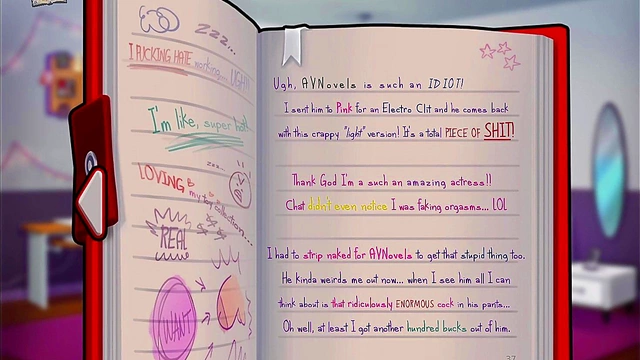 zzz...
I FUCKING HATE working... UGH!!
I'm like, super hot!
zzz...
LOVING my toy collection...
REAL
WANT
Ugh, AVNovels is such an IDIOT!
I sent him to Pink for an Electro Clit and he comes back
with this crappy "light" version! It's a total PIECE OF SHIT!
Thank God I'm a such an amazing actress!!
Chat didn't even notice I was faking orgasms... LOL
I had to strip naked for AVNovels to get that stupid thing too.
He kinda weirds me out... when I see him all I can
think about is that ridiculously ENORMOUS cock in his pants...
Oh well, at least I got another hundred bucks out of him.
37